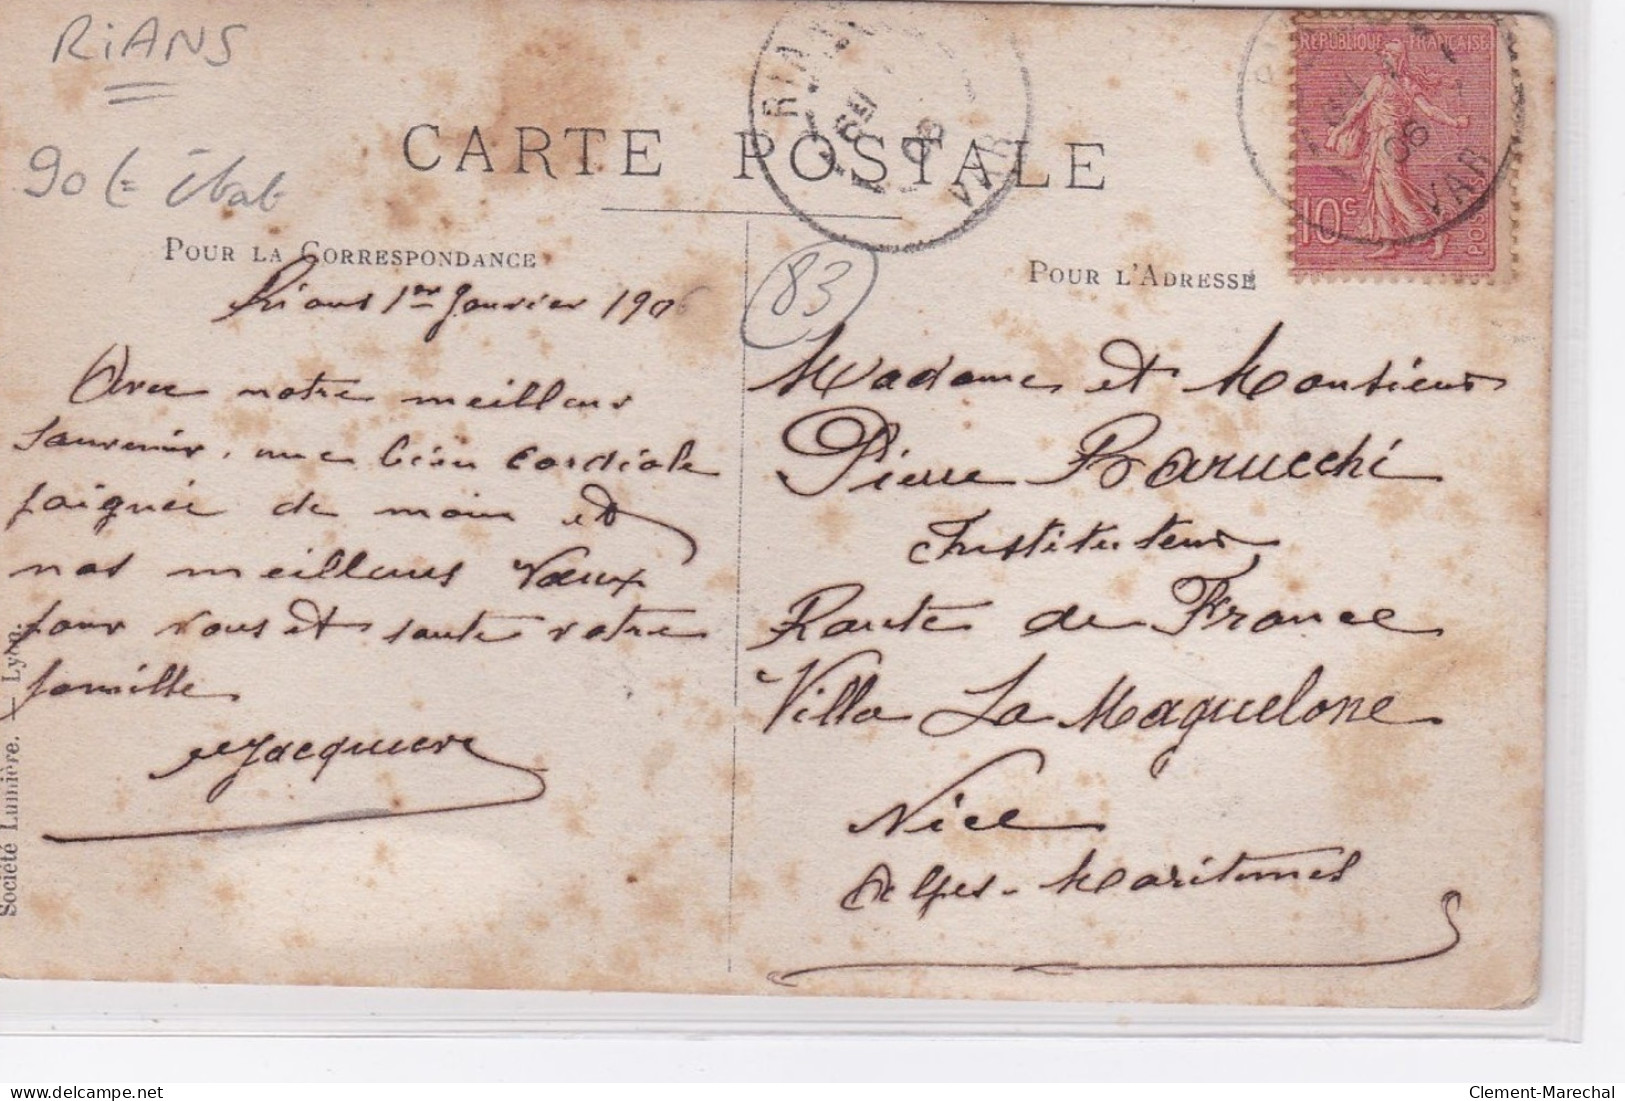 RiANS
90 €
CARTE POSTALE
RIANS
VAR
RÉPUBLIQUE FRANÇAISE
10c
POSTES
06
VAR
POUR LA CORRESPONDANCE
POUR L'ADRESSE
83
Rians 1er Janvier 1906
Avec notre meilleur
souvenir, une bien cordiale
poignée de main et
nos meilleurs Vœux
pour vous et toute votre
famille
Jacquier
Madame et Monsieur
Pierre Barucchi
Instituteur
Route de France
Villa La Maguelone
Nice
Alpes-Maritimes
Société Lumière. — Lyon.
Clement-Marechal